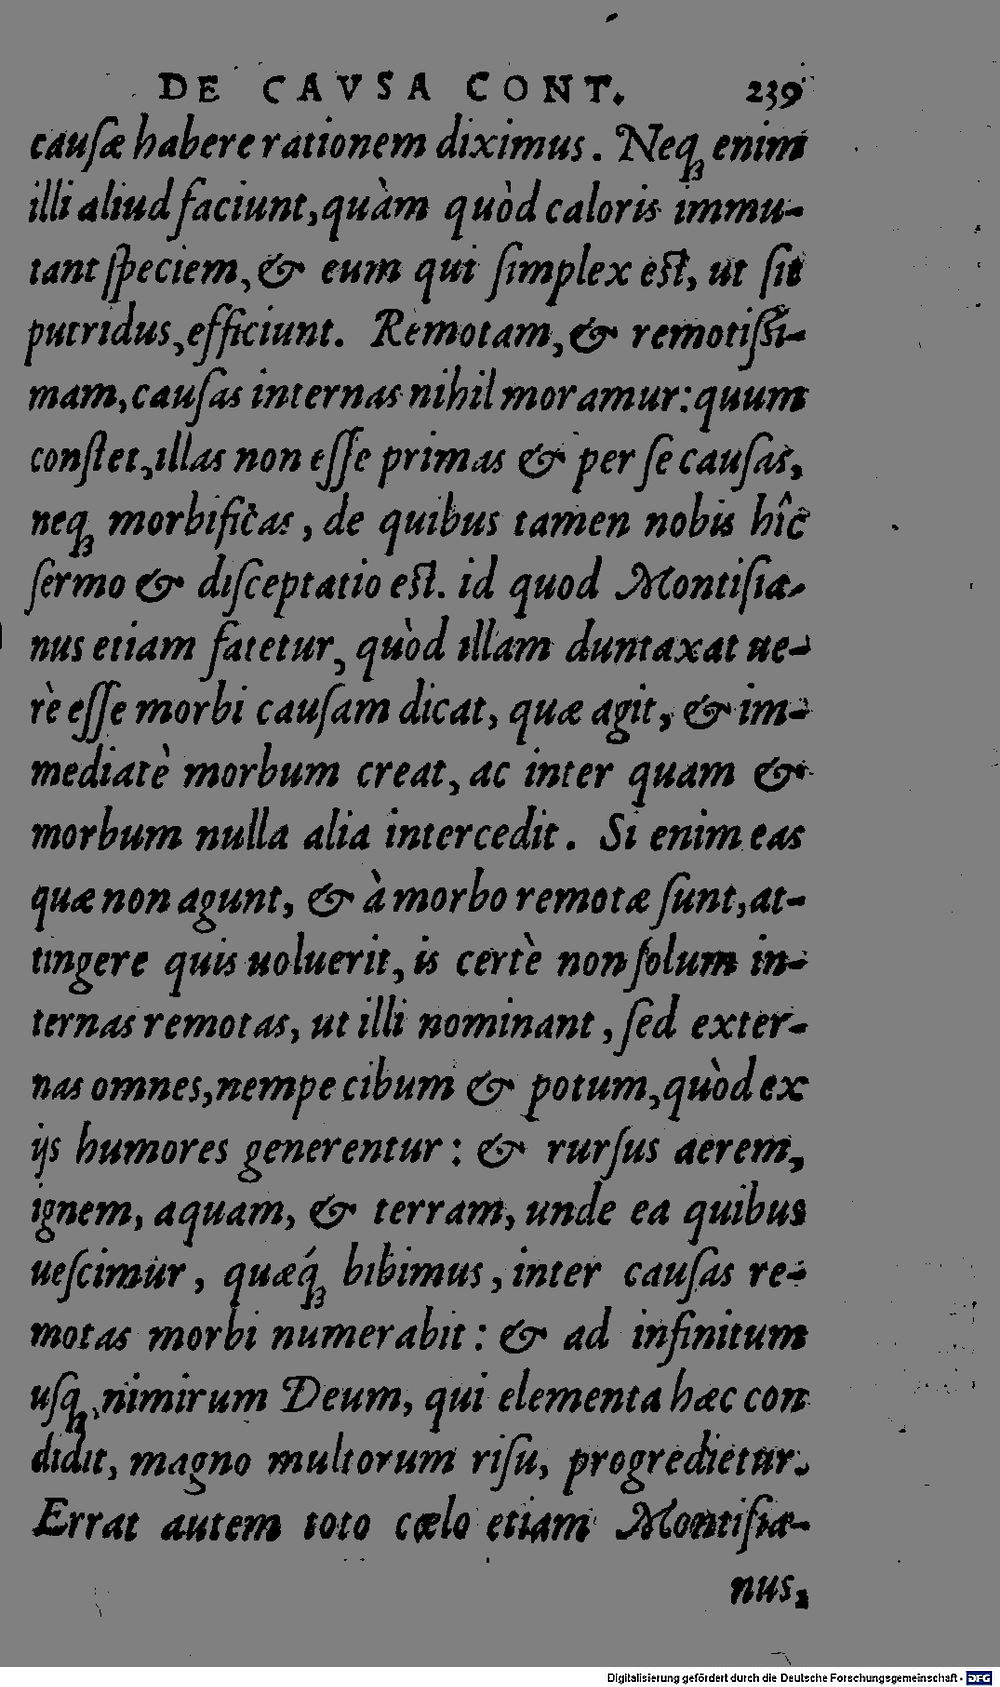 DE CAVSA CONT. 239
cauſæ habere rationem diximus. Neqꝫ enim
illi aliud faciunt, quàm quòd caloris immu-
tant ſpeciem, & eum qui ſimplex eſt, ut ſit
putridus, efficiunt. Remotam, & remotiſsi-
mam, cauſas internas nihil moramur: quum
conſtet, illas non eſſe primas & per ſe cauſas,
neqꝫ morbificas, de quibus tamen nobis hîc
ſermo & diſceptatio eſt. id quod Montiſia-
nus etiam fatetur, quòd illam duntaxat ue-
rè eſſe morbi cauſam dicat, quæ agit, & im-
mediatè morbum creat, ac inter quam &
morbum nulla alia intercedit. Si enim eas
quæ non agunt, & à morbo remotæ ſunt, at-
tingere quis uoluerit, is certè non ſolum in-
ternas remotas, ut illi nominant, ſed exter-
nas omnes, nempe cibum & potum, quòd ex
ijs humores generentur: & rurſus aerem,
ignem, aquam, & terram, unde ea quibus
ueſcimur, quæq́ꝫ bibimus, inter cauſas re-
motas morbi numerabit: & ad infinitum
uſqꝫ, nimirum Deum, qui elementa hæc con
didit, magno multorum riſu, progredietur.
Errat autem toto cœlo etiam Montiſia-
nus,
Digitalisierung gefördert durch die Deutsche Forschungsgemeinschaft - DFG